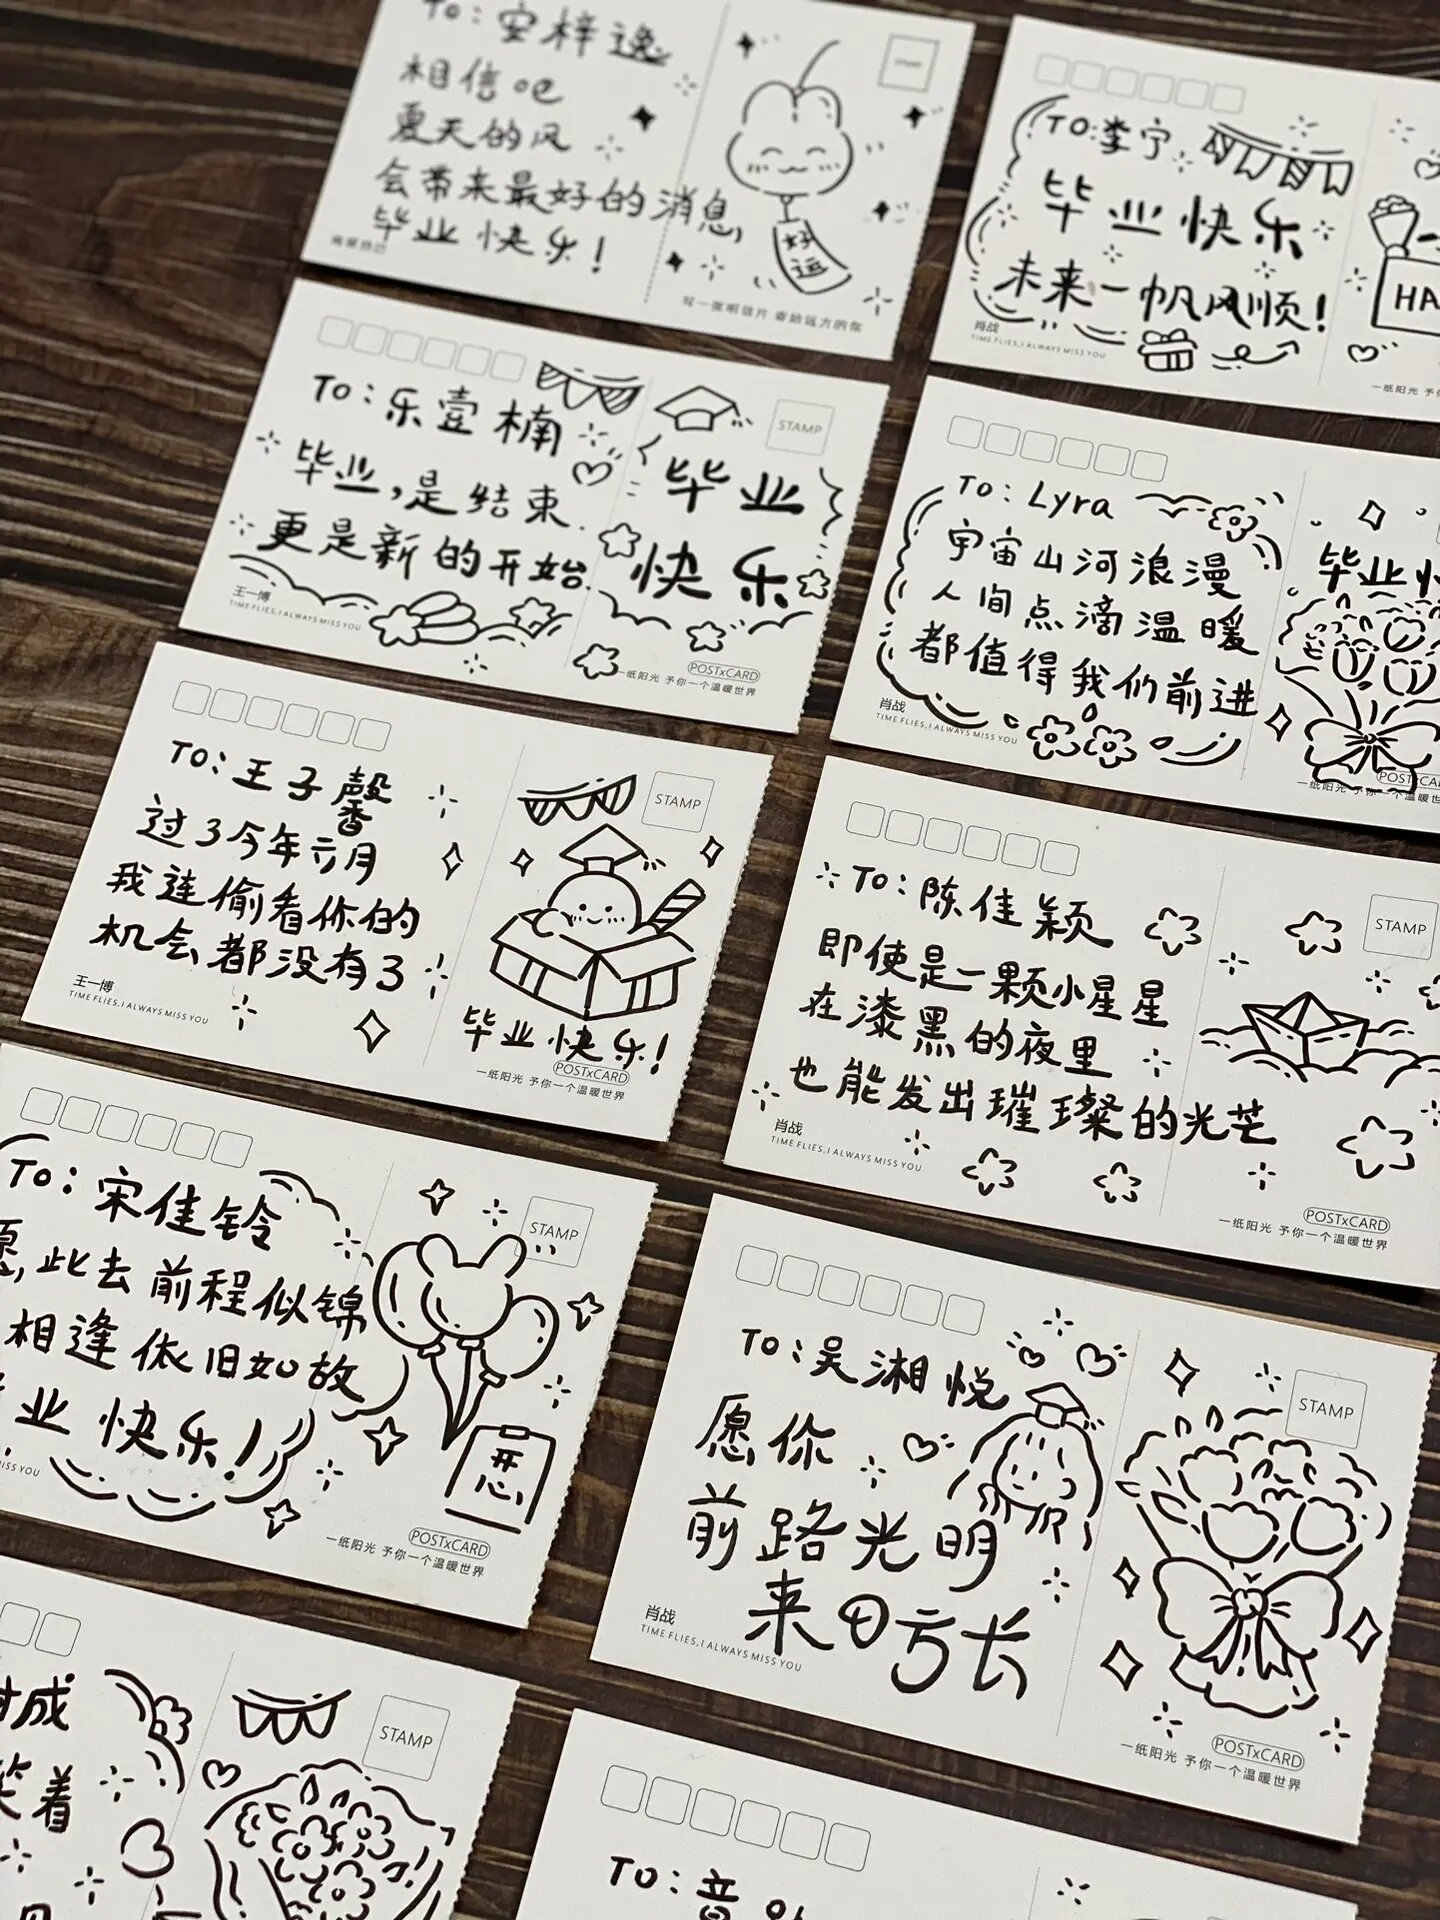 To: 安梓逸
相信吧
夏天的风
会带来最好的消息,
毕业快乐!
STAMP
好
运
写一张明信片 寄给远方的你
TO: 李宁
毕业快乐
未来一帆风顺!
肖战
TIME FLIES, I ALWAYS MISS YOU
HA
一纸阳光 予
To: 乐壹楠
毕业,是结束.
更是新的开始.
王一博
TIME FLIES, I ALWAYS MISS YOU
STAMP
毕业
快乐
POSTxCARD
一纸阳光 予你一个温暖世界
To: Lyra
宇宙山河浪漫
人间点滴温暖
都值得我们前进
肖战
TIME FLIES, I ALWAYS MISS YOU
毕业快
POSTxCARD
To: 王子馨
过了今年六月
我连偷看你的
机会都没有了
王一博
TIME FLIES, I ALWAYS MISS YOU
STAMP
毕业快乐!
POSTxCARD
一纸阳光 予你一个温暖世界
To: 陈佳颖
即使是一颗小星星
在漆黑的夜里
也能发出璀璨的光芒
肖战
TIME FLIES, I ALWAYS MISS YOU
STAMP
POSTxCARD
一纸阳光 予你一个温暖世界
To: 宋佳铃
愿,此去前程似锦
相逢依旧如故
业快乐!
ISS YOU
STAMP
开
心
POSTxCARD
一纸阳光 予你一个温暖世界
To: 吴湘悦
愿你
前路光明
来日方长
肖战
TIME FLIES, I ALWAYS MISS YOU
STAMP
POSTxCARD
一纸阳光 予你一个温暖世界
成
笑着
STAMP
To: 音